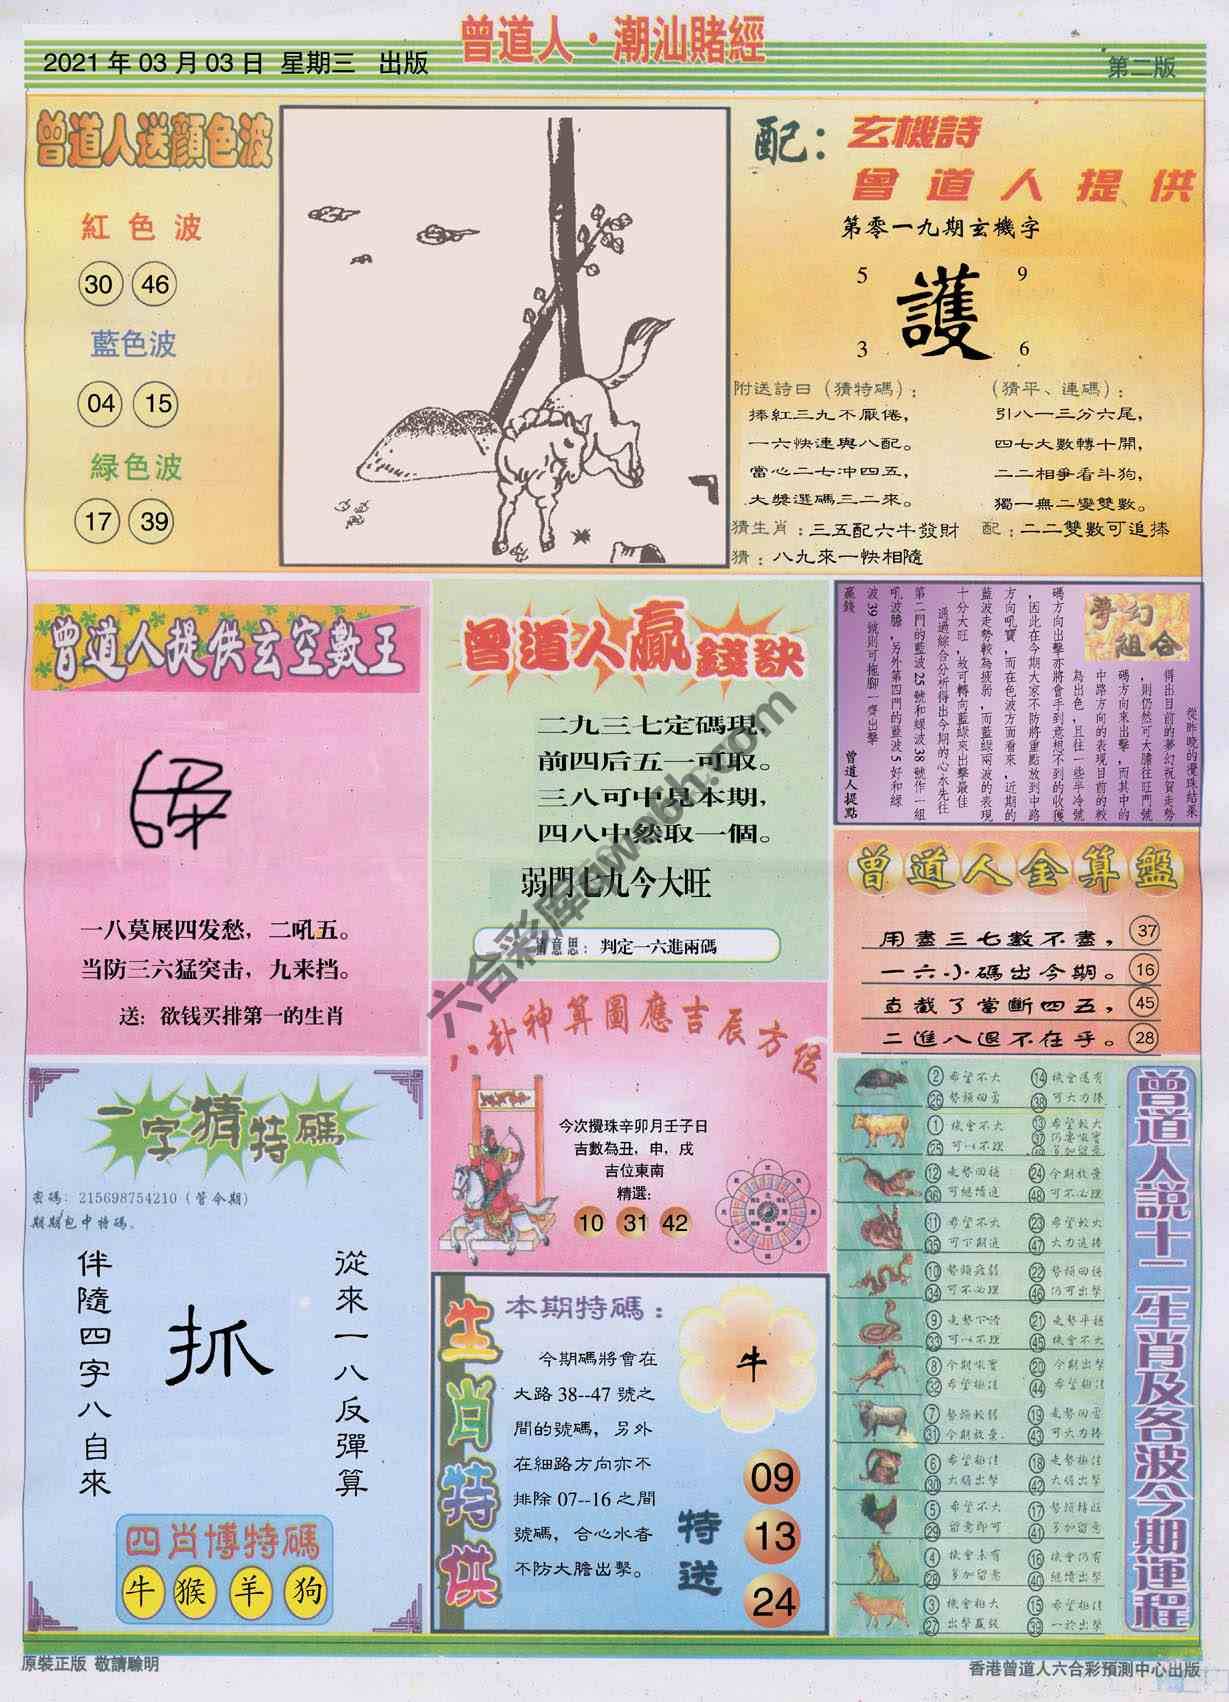 2021 年 03 月 03 日 星期三 出版
曾道人·潮汕賭經
第二版
曾道人送顏色波
紅色波
30 46
藍色波
04 15
緑色波
17 39
配：玄機詩
曾道人提供
第零一九期玄機字
5 9
護
3 6
附送詩曰（猜特碼）：
捧紅三九不厭倦，
一六快連與八配。
當心二七沖四五，
大獎選碼三二來。
（猜平、連碼）：
引八一三分六尾，
四七大數轉十開，
二二相爭看斗狗，
獨一無二變雙數。
猜生肖：三五配六牛發財
配：二二雙數可追捧
猜：八九來一快相隨
曾道人提供玄空數王
一八莫展四发愁，二吼五。
当防三六猛突击，九来挡。
送：欲钱买排第一的生肖
曾道人贏錢訣
二九三七定碼現，
前四后五一可取。
三八可中是本期，
四八中然取一個。
弱門七九今大旺
猜意思：判定一六進兩碼
夢幻組合
從昨晚的攪珠結果
得出目前的夢幻祝賀走勢
，則仍然可大膽往旺門號
碼方向來出擊，而其中的
中路方向的表現目前的較
為出色，且往一些半冷號
碼方向出擊亦將會手到意想不到的收獲
，因此在今期大家不防將重點放到中路
方向吼寶，而在色波方面看來，近期的
藍波走勢較為疲弱，而藍綠兩波的表現
十分大旺，故可轉向藍綠來出擊最佳
通過綜合分析得出今期的心水先往
第二門的藍波 25 號和緑波 38 號作一組
吼波膽，另外第四門的藍波 5 好和綠
波 39 號則可拖腳一齊出擊
贏錢
曾道人提點
曾道人金算盤
用盡三七數不盡， 37
一六小碼出今期。 16
直截了當斷四五， 45
二進八退不在乎。 28
八卦神算圖應吉辰方位
今次攪珠辛卯月壬子日
吉數為丑，申，戌
吉位東南
精選：
10 31 42
一字猜特碼
密碼：215698754210（管今期）
期期包中特碼。
從來一八反彈算
抓
伴隨四字八自來
四肖博特碼
牛 猴 羊 狗
生肖特供
本期特碼：
今期碼將會在
大路 38--47 號之
間的號碼，另外
在細路方向亦不
排除 07--16 之間
號碼，合心水者
不防大膽出擊。
牛
特送
09
13
24
曾道人說十二生肖及各波今期運程
2 希望不大 14 機會還有
26 勢頭回落 38 可大力捧
1 機會不大 13 希望較大
25 可以不理 37
12 走勢回穩 24 今期放量
36 可繼續追 48 可不必理
11 希望不大 23 希望較大
35 可下期追 47 大力追捧
10 勢頭疲弱 22 勢頭回穩
34 可不必理 46 仍可出擊
9 走勢下滑 21 走勢平穩
33 可以不理 45 機會不大
8 今期吼實 20 今期出擊
32 希望極佳 44 希望極佳
7 勢頭較弱 19 走勢回落
31 今期放量 43 可大力捧
6 希望極佳 18 走勢極佳
30 大膽出擊 42 大膽出擊
5 希望不大 17 勢頭轉旺
29 留意即可 41 多加留意
4 機會未有 16 機會仍有
28 多加留意 40 繼續出擊
3 機會極大 15 希望極佳
27 出擊贏錢 39 一於出擊
六合彩库 wabh.com
原裝正版 敬請騐明
香港曾道人六合彩預測中心出版